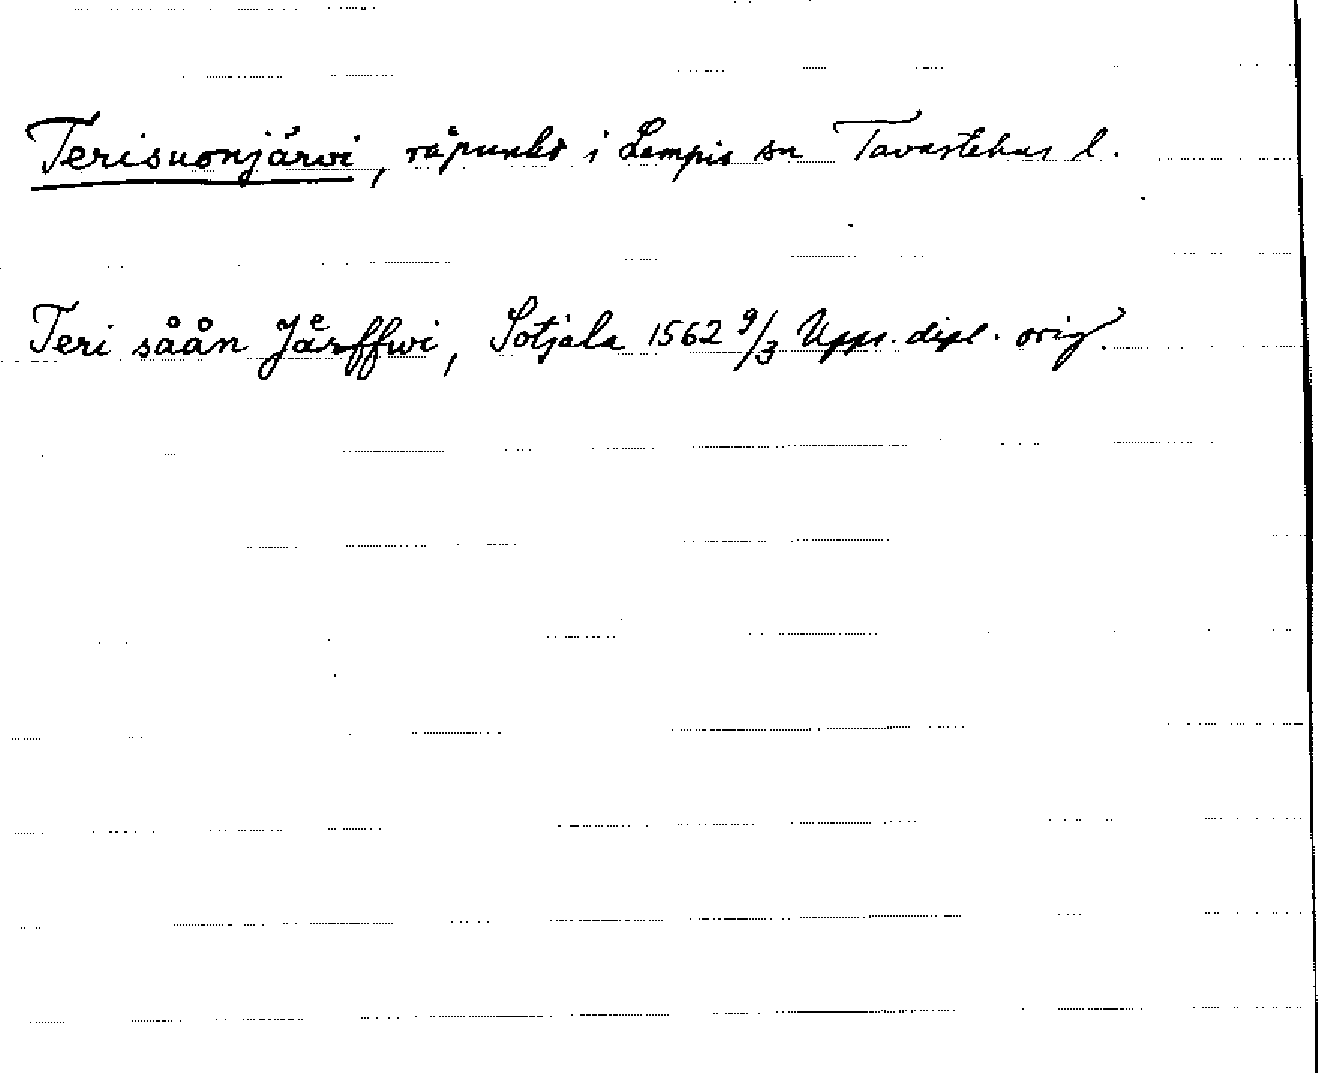 Terisuonjärvi, råpunkt i Lempis sn Tavastehus l.
Teri såån Jaͤrffwi, Sotjala 1562 9/3 Upps. dipl. orig.